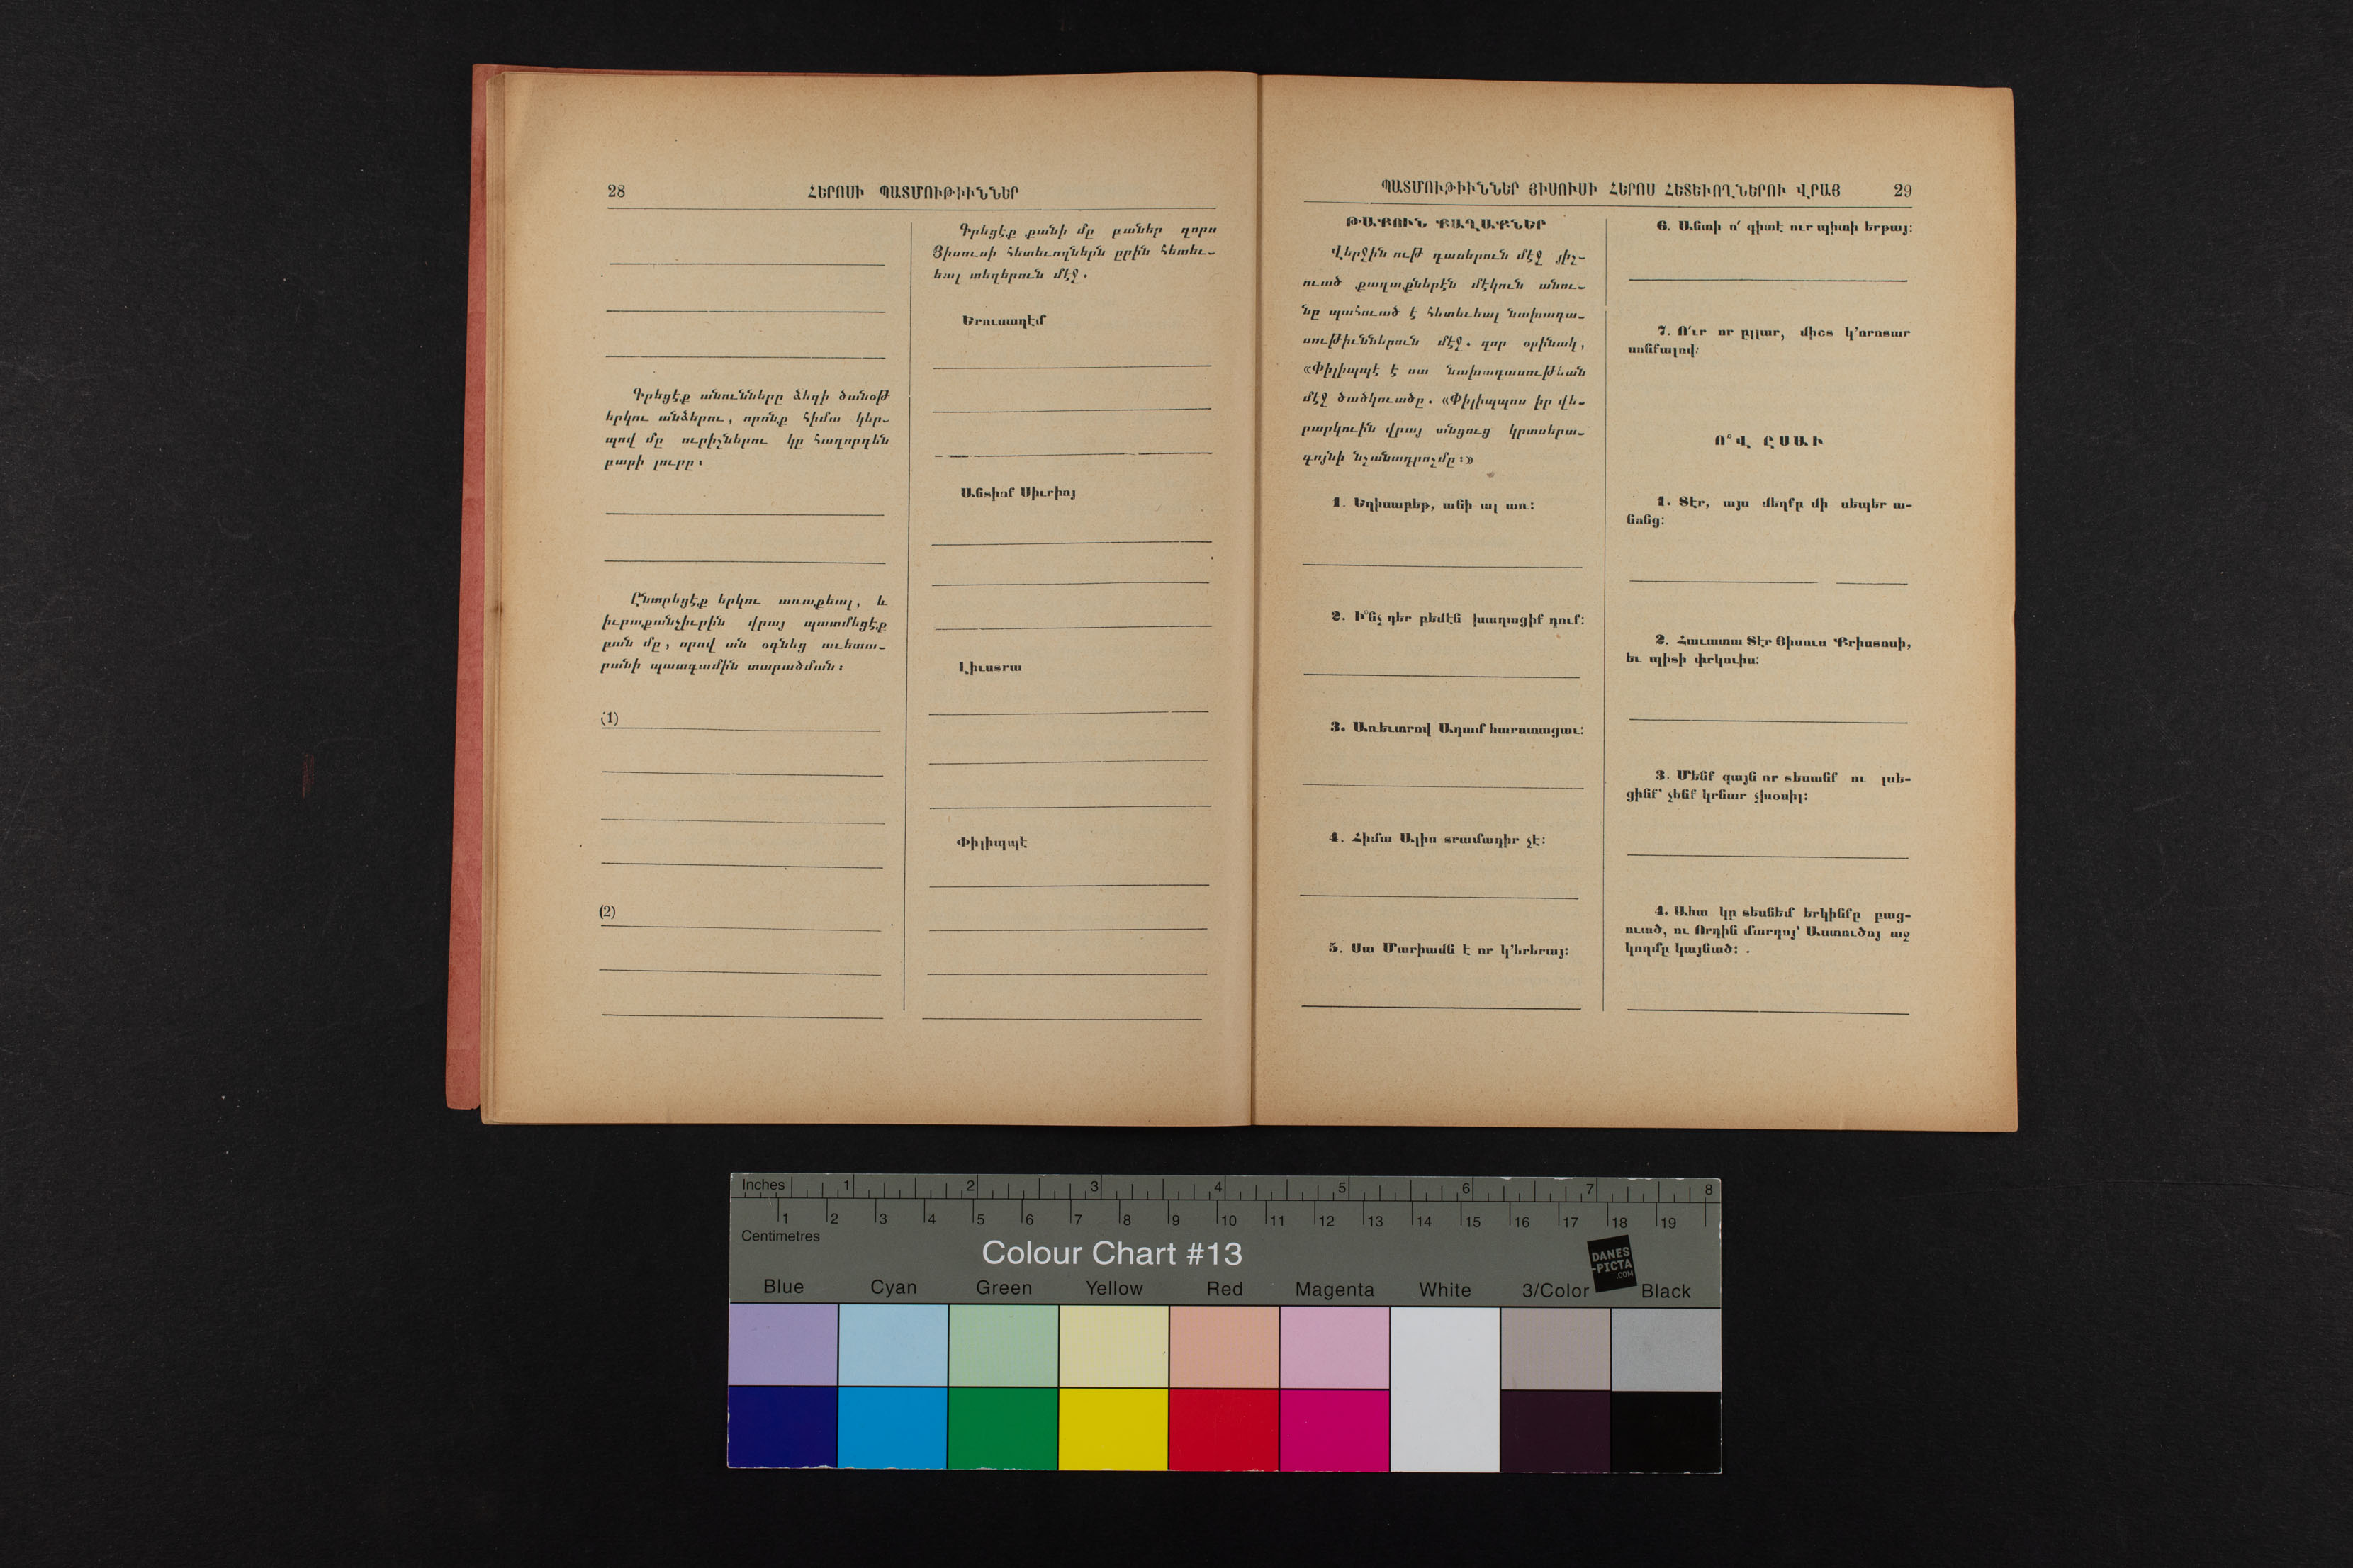 28
ՀԵՐՈՍԻ ՊԱՏՄՈՒԹԻՒՆՆԵՐ
Գրեցէք անունները ձեզի ծանօթ
երկու անձերու, որոնք հիմա կեր-
պով մը ուրիշներու կը հաղորդեն
բարի լուրը։
Ընտրեցէք երկու առաքեալ, և
իւրաքանչիւրին վրայ պատմեցէք
բան մը, որով ան օգնեց աւետա-
րանի պատգամին տարածման։
(1)
(2)
Գրեցէք քանի մը բաներ զորս
Յիսուսի հետեւողներն ըրին հետեւ-
եալ տեղերուն մէջ.
Երուսաղէմ
Անտիոք Սիւրիոյ
Լիւստրա
Փիլիպպէ
ՊԱՏՄՈՒԹԻՒՆՆԵՐ ՅԻՍՈՒՍԻ ՀԵՐՈՍ ՀԵՏԵՒՈՂՆԵՐՈՒ ՎՐԱՅ
29
ԹԱՔՈՒՆ ՔԱՂԱՔՆԵՐ
Վերջին ութ դասերուն մէջ յիշ-
ուած քաղաքներէն մէկուն անու-
նը պահուած է հետեւեալ նախադա-
սութիւններուն մէջ. զոր օրինակ,
«Փիլիպպէ է սա նախադասութեան
մէջ ծածկուածը. «Փիլիպպոս իր վե-
րարկուին վրայ անցուց կրտսերա-
գոյնի նշանադրոշմը։»
1. Եղիսաբեթ, անի ալ առ։
2. Ի՞նչ դեր բեմէն խաղացիք դուք։
3. Առեւտրով Ադամ հարստացաւ։
4. Հիմա Ալիս տրամադիր չէ։
5. Սա Մարիամն է որ կ՚երերայ։
6. Անտի ո՛ գիտէ ուր պիտի երթայ։
7. Ո՛ւր որ ըլլար, միշտ կ՚որոտար
սոնքալով։
Ո՞Վ ԸՍԱՒ
1. Տէր, այս մեղքը մի սեպեր ա-
նոնց։
2. Հաւատա Տէր Յիսուս Քրիստոսի,
եւ պիտի փրկուիս։
3. Մենք զայն որ տեսանք ու լսե-
ցինք՝ չենք կրնար չխօսիլ։
4. Ահա կը տեսնեմ երկինքը բաց-
ուած, ու Որդին մարդոյ՝ Աստուծոյ աջ
կողմը կայնած։ .
Inches 1 2 3 4 5 6 7 8
1 2 3 4 5 6 7 8 9 10 11 12 13 14 15 16 17 18 19
Centimetres
Colour Chart #13
DANES
-PICTA
.COM
Blue Cyan Green Yellow Red Magenta White 3/Color Black